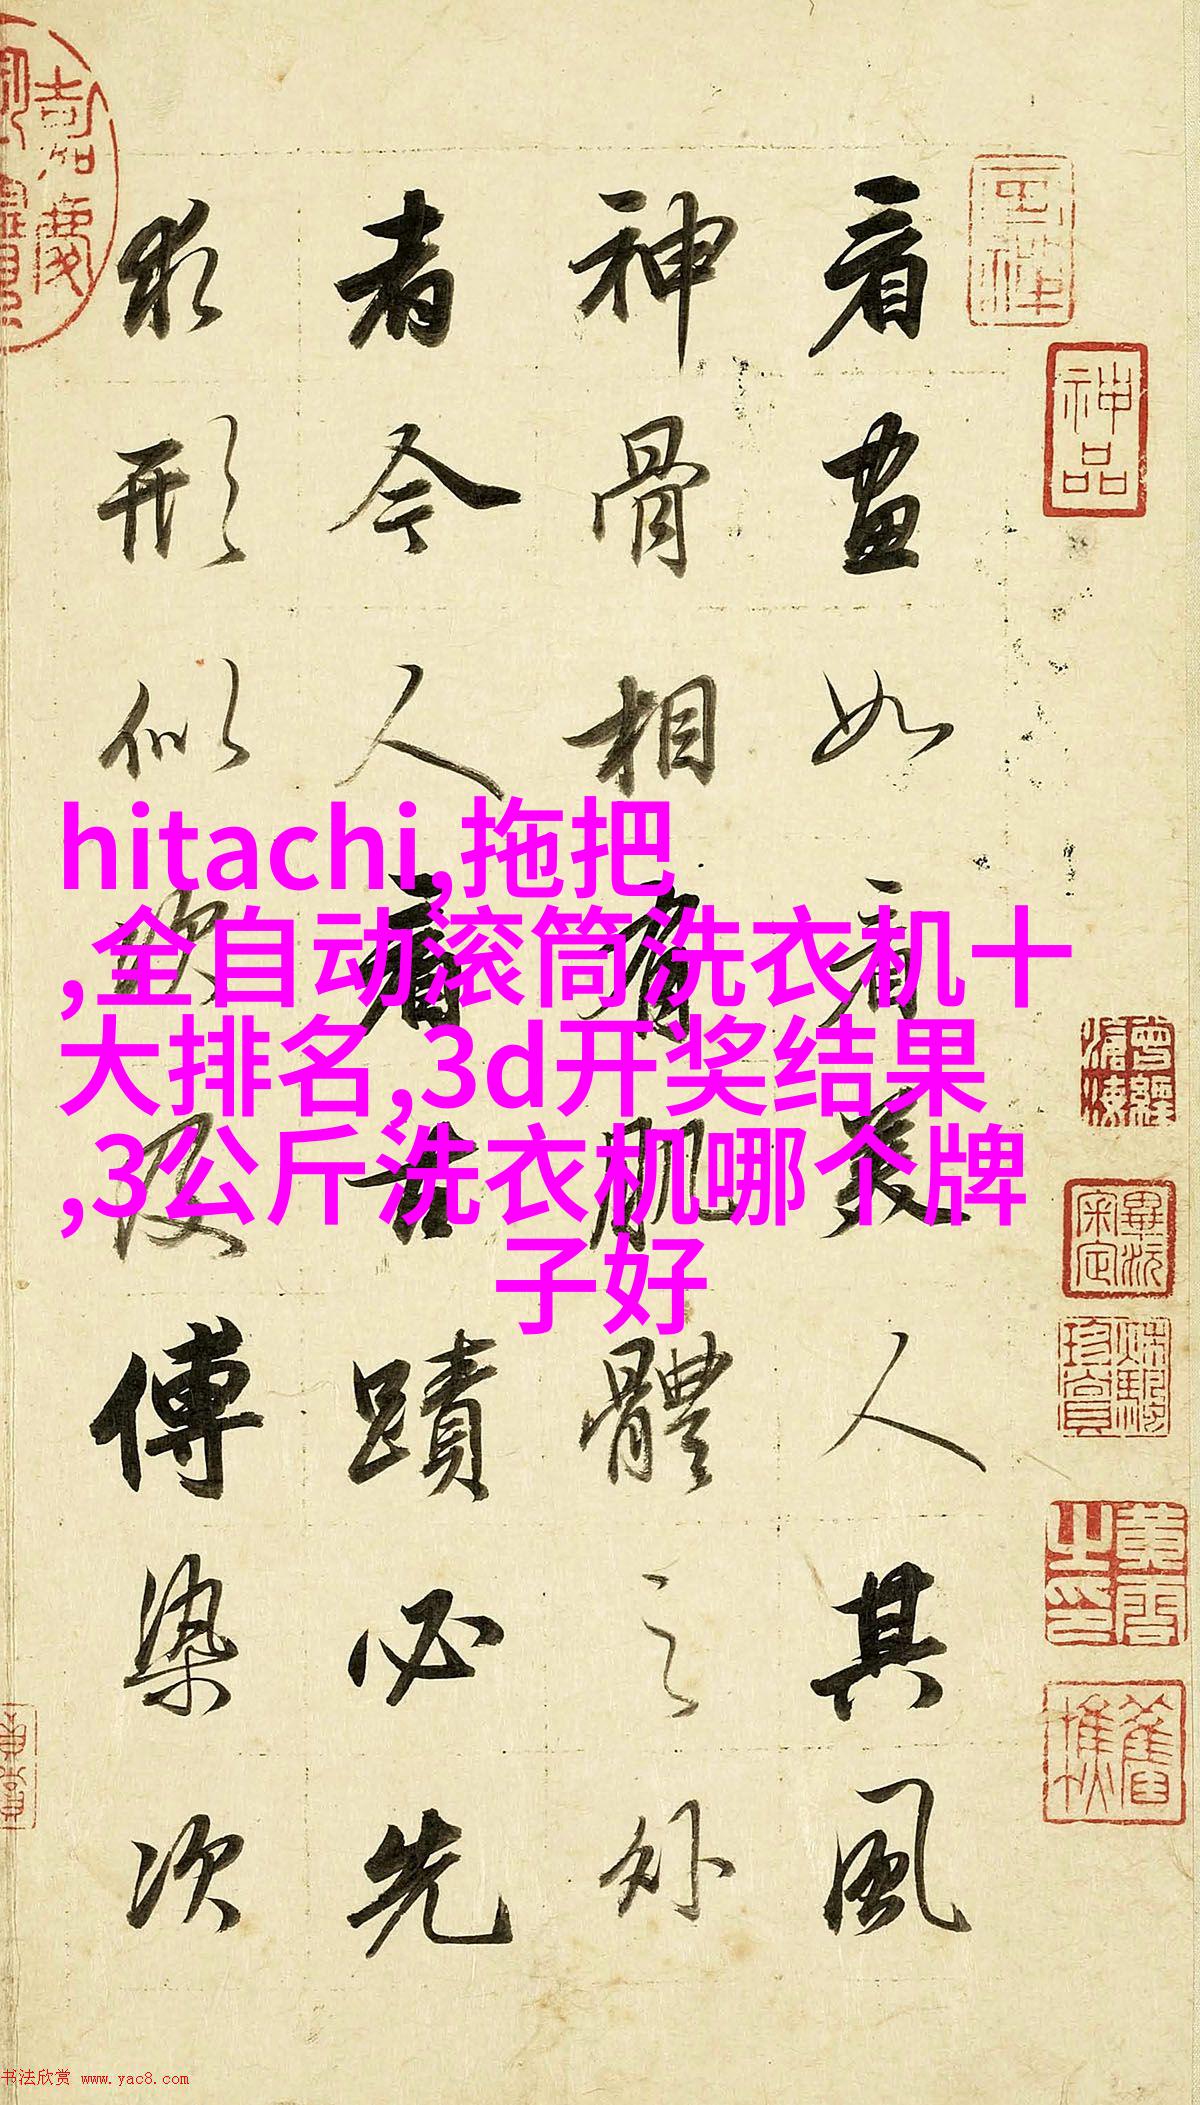 看畫如看美人其風
神骨相有肌體之外
者今人看古蹟必先
求形似次及傅染次
hitachi,拖把
,全自动滚筒洗衣机十
大排名,3d开奖结果
,3公斤洗衣机哪个牌
子好
神品
嘉慶
书法欣赏 www.yac8.com